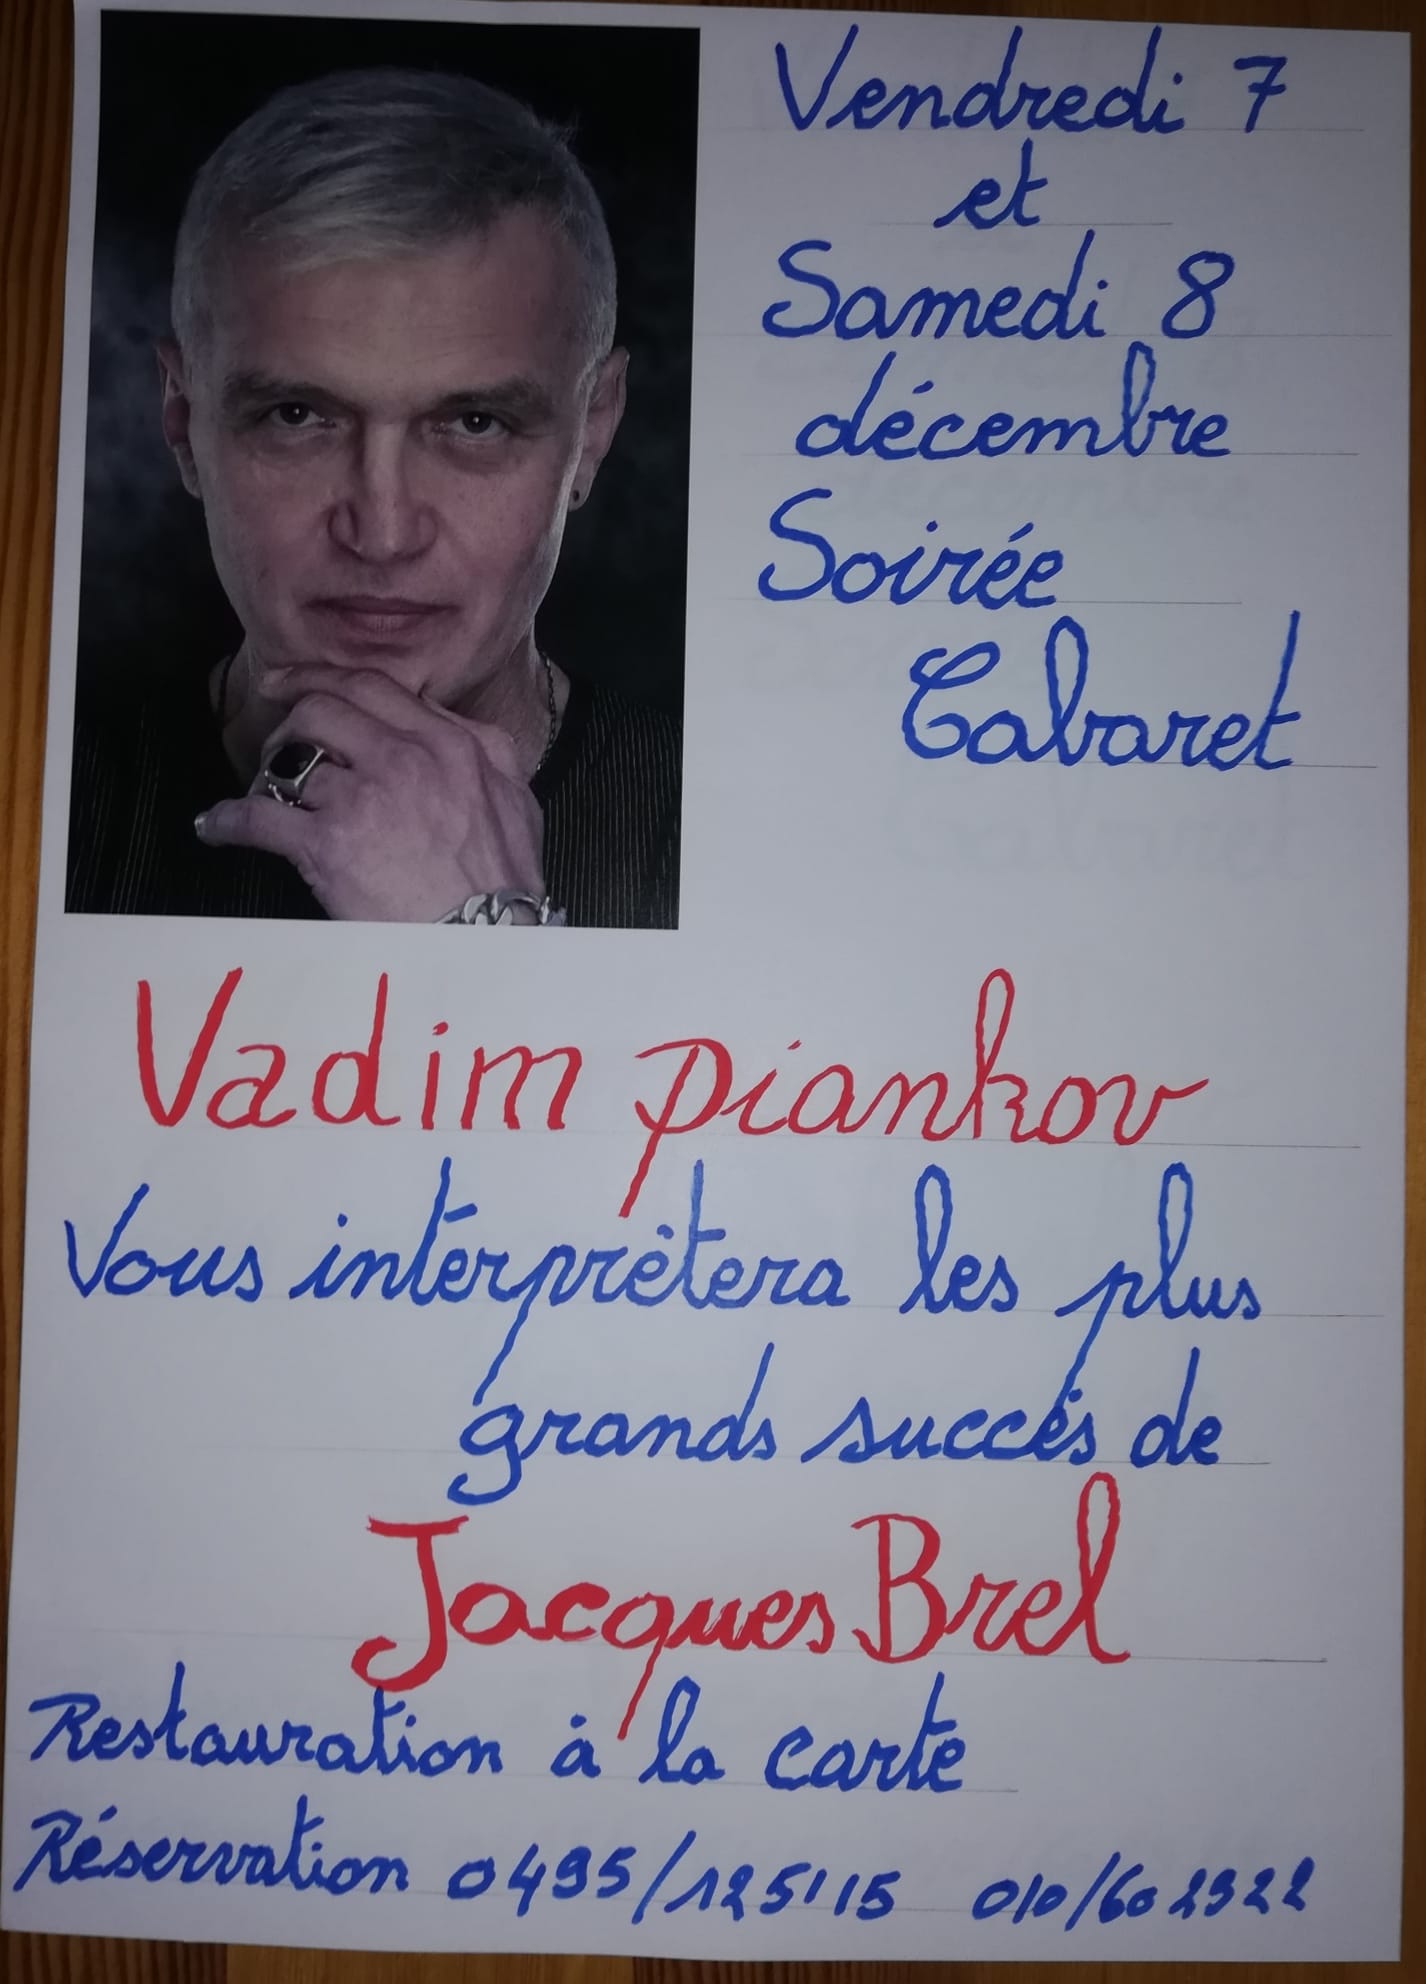 Vendredi 7
et
Samedi 8
décembre
Soirée
Cabaret
Vadim Piankov
Vous interprètera les plus
grands succés de
Jacques Brel
Restauration à la carte
Réservation 0495/125115 010/602922